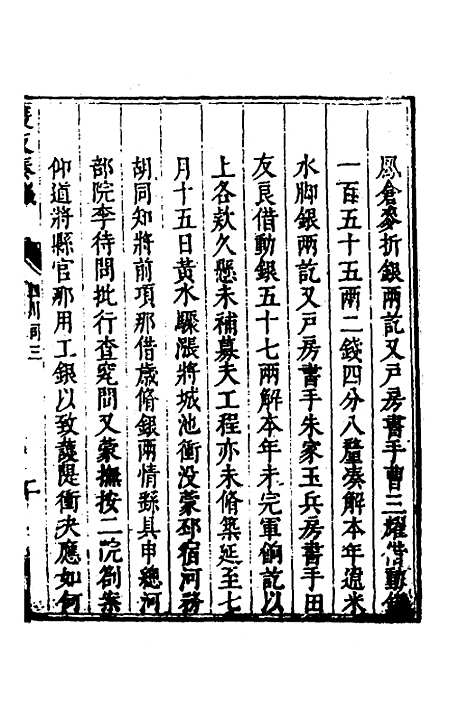 鳳倉麥折銀兩訖又戸房書手曹三耀借動銀
一百五十五兩二錢四分八釐湊解本年遼米
水脚銀兩訖又戸房書手朱家玉兵房書手田
友良借動銀五十七兩解本年未完軍餉訖以
上各欵久懸未補募夫工程亦未脩築延至七
月十五日黃水驟漲將城池衝没蒙邳宿河務
胡同知將前項那借歲脩銀兩情繇具申總河
部院李待問批行查究問又蒙撫按二院劄案
仰道將縣官那用工銀以致護隄衝决應如何